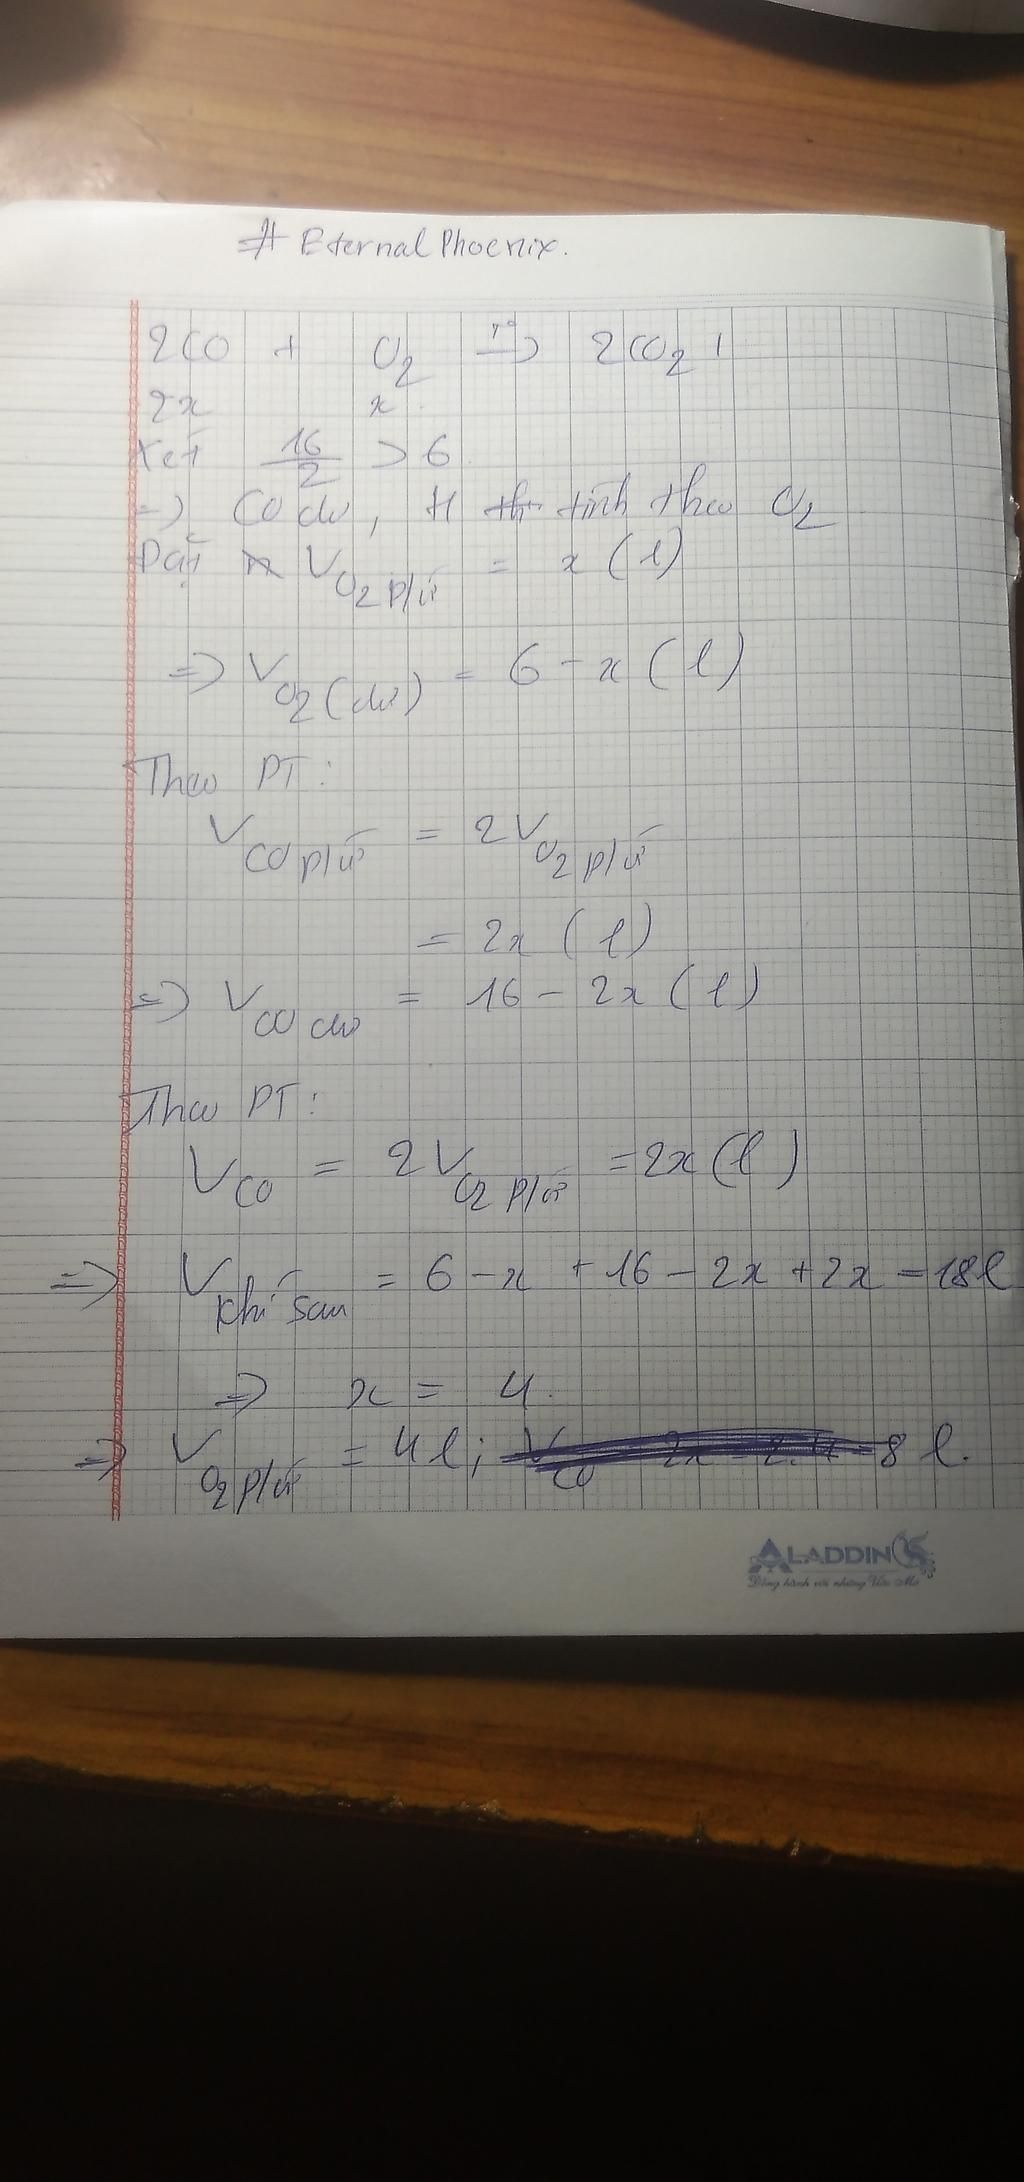 # Eternal Phoenix.
2CO + O2 t°→ 2CO2
2x x
Xét 16/2 > 6
=) CO dư, H tính theo O2
Đặt V O2 p/ứ = x (l)
=) V O2 (dư) = 6 - x (l)
Theo PT:
V CO p/ứ = 2V O2 p/ứ
= 2x (l)
=) V CO dư = 16 - 2x (l)
Theo PT:
V CO = 2V O2 p/ứ = 2x (l)
=) V khí sau = 6 - x + 16 - 2x + 2x = 18l
=) x = 4.
=) V O2 p/ứ = 4l; V CO 2x = 2.4 = 8 l.
ALADDIN
Đồng hành với những Ước Mơ